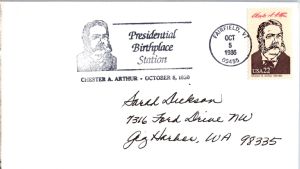 Presidential
Birthplace
Station
CHESTER A. ARTHUR • OCTOBER 5, 1830
FAIRFIELD, VT
OCT
5
1986
05455
USA 22
Sarah Dickson
7316 Ford Drive NW
Gig Harbor, WA 98335